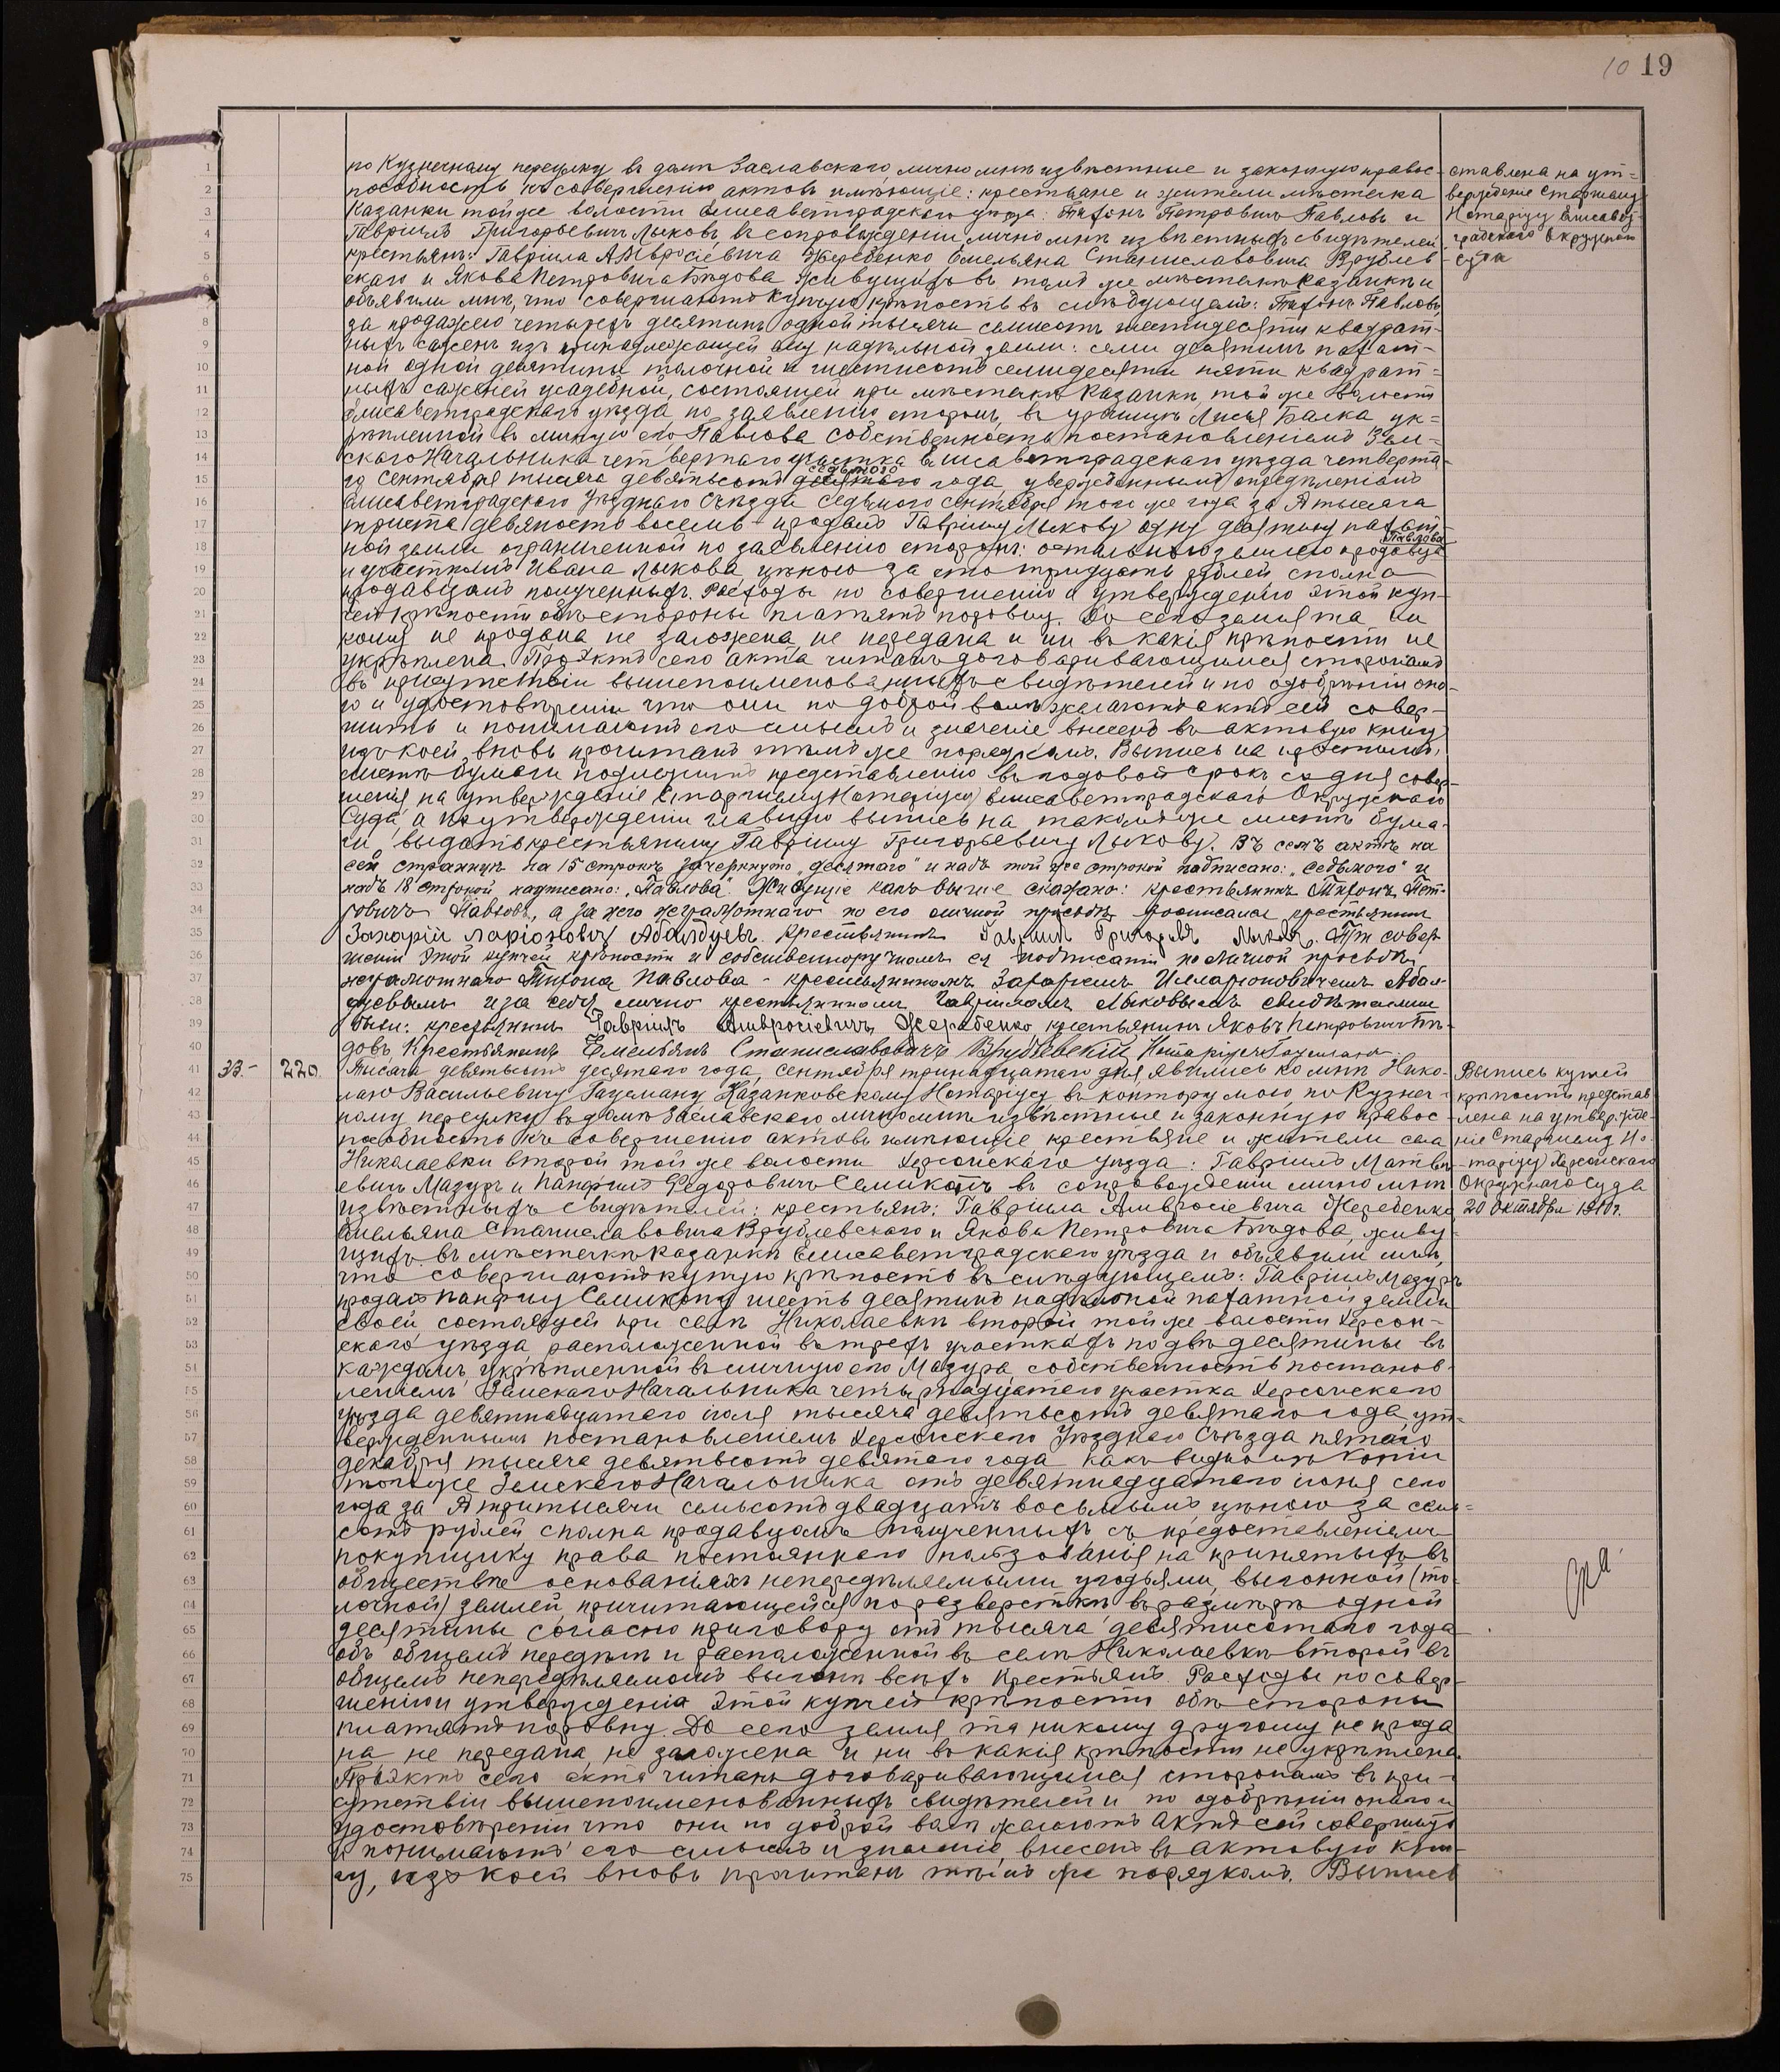 10 19
1 по Кузнечному переулку въ домѣ Заславскаго, лично мнѣ извѣстные и законную правос-
2 пособность къ совершенію актовъ имѣющіе: крестьяне и жители мѣстечка
3 Казанки той же волости Елисаветградскаго уѣзда: Тифонъ Петровичъ Павловъ и
4 Гавріилъ Григорьевичъ Лыковъ, въ сопровожденіи лично мнѣ извѣстныхъ свидѣтелей
5 крестьянъ: Гавріила Амвросіевича Жеребенко Емельяна Станиславовича Врублев-
6 скаго и Якова Петровича Бѣдова живущихъ въ томъ же мѣстечкѣ Казанкѣ и
7 объявили мнѣ, что совершаютъ купчую крѣпость въ слѣдующемъ: Тифонъ Павловъ,
8 за продажею четырехъ десятинъ одной тысячи семисотъ шестидесяти квадрат-
9 ныхъ сажень изъ принадлежащей ему надѣльной земли: семи десятинъ пахат-
10 ной одной десятины толочной и шестисотъ семидесяти пяти квадрат-
11 ныхъ саженей усадебной, состоящей при мѣстечкѣ Казанкѣ, той же волости
12 Елисаветградскаго уѣзда по заявленію сторонъ, въ урочищѣ Лисья Балка ук-
13 рѣпленной въ личную его Павлова собственность постановленіемъ Зем-
14 скаго Начальника четвертаго участка Елисаветградскаго уѣзда четверта-
седьмого
15 го Сентября тысяча девятьсотъ десятаго года, утвержденнымъ опредѣленіемъ
16 Елисаветградскаго Уѣзднаго Съѣзда седьмого сентября того же года за № тысяча
17 триста девяносто восемь - продалъ Гавріилу Лыкову одну десятину пахат-
Павлова
18 ной земли ограниченной по заявленію сторонъ: остальною землею продавца
19 и участкомъ Ивана Лыкова цѣною за сто тридцать рублей сполна
20 продавцомъ полученныхъ. Расходы по совершенію и утвержденію этой куп-
21 чей крѣпости обѣ стороны платятъ поровну. До сего земля та ни
22 кому не продана не заложена, не передана и ни въ какія крѣпости не
23 укрѣплена. Проэктъ сего акта читанъ договаривающимся сторонамъ
24 въ присутствіи вышепоименованныхъ свидѣтелей и по одобреніи она-
25 го и удостовѣреніи что они по доброй волѣ желаютъ актъ сей совер-
26 шить и понимаютъ его смыслъ и значеніе внесенъ въ актовую книгу
27 изъ коей вновь прочитанъ тѣмъ же порядкомъ. Выпись на простомъ,
28 листѣ бумаги подлежитъ представленію въ годовой срокъ со дня совер-
29 шенія, на утвержденіе Старшему Нотаріусу Елисаветградскаго Окружнаго
30 Суда, а по утвержденіи главную выпись на таковомъ же листѣ бума-
31 ги выдать крестьянину Гавріилу Григорьевичу Лыкову. Въ семъ актѣ на
32 сей страницѣ на 15 строкѣ зачеркнуто „десятаго" и надъ той же строкой надписано: „седьмого" и
33 надъ 18 строкой надписано: „Павлова". Живущіе какъ выше сказано: крестьянинъ Тифонъ Пет-
34 ровичъ Павловъ, а за него неграмотнаго по его личной просьбѣ росписался крестьянинъ
35 Захарій Ларіоновичъ Абалдуевъ. Крестьянинъ Гавріилъ Григорьевъ Лыковъ. При совер
36 шеніи этой купчей крѣпости и собственноручномъ ея подписаніи по личной просьбѣ
37 неграмотнаго Тифона Павлова - крестьяниномъ Захаріемъ Илларіоновичемъ Абал-
38 дуевымъ и за себя лично крестьяниномъ Гавріиломъ Лыковымъ свидѣтелями
39 были: крестьянинъ Гавріилъ Амвросіевичъ Жеребенко, крестьянинъ Яковъ Петровичъ Бѣ-
40 довъ, Крестьянинъ Емельянъ Станиславовичъ Врублевскій. Нотаріусъ Гацеманъ
ставлена на ут-
вержденіе Старшему
Нотаріусу Елисавет-
градскаго Окружнаго
Суда
33.- 220.
41 Тысяча девятьсотъ десятаго года, сентября тринадцатаго дня, явились ко мнѣ Нико-
42 лаю Васильевичу Гацеману Казанковскому Нотаріусу въ контору мою по Кузнеч-
43 ному переулку въ домѣ Заславскаго лично мнѣ извѣстные и законную правос-
44 пособность къ совершенію актовъ имѣющіе крестьяне и жители села
45 Николаевки второй той же волости Херсонскаго уѣзда: Гавріилъ Матвѣ-
46 евичъ Мазуръ и Панфилъ Федоровичъ Семикопъ въ сопровожденіи лично мнѣ
47 извѣстныхъ свидѣтелей: крестьянъ: Гавріила Амвросіевича Жеребенко
48 Емельяна Станиславовича Врублевскаго и Якова Петровича Бѣдова, живу-
49 щихъ въ мѣстечкѣ Казанкѣ Елисаветградскаго уѣзда и объявили мнѣ,
50 что совершаютъ купчую крѣпость въ слѣдующемъ: Гавріилъ Мазуръ
51 продалъ Панфилу Семикопу шесть десятинъ надѣльной пахатной земли
52 своей состоящей при селѣ Николаевкѣ второй той же волости Херсон-
53 скаго уѣзда расположенной въ трехъ участкахъ по двѣ десятины въ
54 каждомъ, укрѣпленной въ личную его Мазура, собственность постанов-
55 леніемъ Земскаго Начальника четырнадцатаго участка Херсонскаго
56 уѣзда девятнадцатаго іюля тысяча девятьсотъ девятаго года, ут-
57 вержденнымъ постановленіемъ Херсонскаго Уѣзднаго Съѣзда пятаго
58 декабря тысяча девятьсотъ девятаго года какъ видно изъ копіи
59 того же Земскаго Начальника отъ девятнадцатаго іюня сего
60 года за № три тысячи семьсотъ двадцать восьмымъ цѣною за семь-
61 сотъ рублей сполна продавцомъ полученныхъ съ предоставленіемъ
62 покупщику права постояннаго пользованія на принятыхъ въ
63 обществѣ основаніяхъ непередѣляемыми угодьями, выгонной (то
64 лочной) землей, причитающейся по разверсткѣ въ размѣрѣ одной
65 десятины согласно приговору отъ тысяча девятисотаго года
66 объ общемъ передѣлѣ и расположенной въ селѣ Николаевкѣ второй въ
67 общемъ непередѣляемомъ выгонѣ всѣхъ крестьянъ. Расходы по совер-
68 шенію и утвержденію этой купчей крѣпости обѣ стороны
69 платятъ поровну. До сего земля та никому другому не прода
70 на не передана, не заложена и ни въ какія крѣпости не укрѣплена.
71 Проэктъ сего акта читанъ договаривающимся сторонамъ въ при-
72 сутствіи вышепоименованныхъ свидѣтелей и по одобреніи онаго и
73 удостовѣреніи что они по доброй волѣ желаютъ актъ сей совершить
74 и понимаютъ его смыслъ и значеніе, внесенъ въ актовую кни-
75 гу, изъ коей вновь прочитанъ тѣмъ же порядкомъ. Выпись
Выпись купчей
крѣпости представ
лена на утвержде-
ніе Старшему Но-
таріусу Херсонскаго
Окружнаго Суда
20 октября 1910 г.